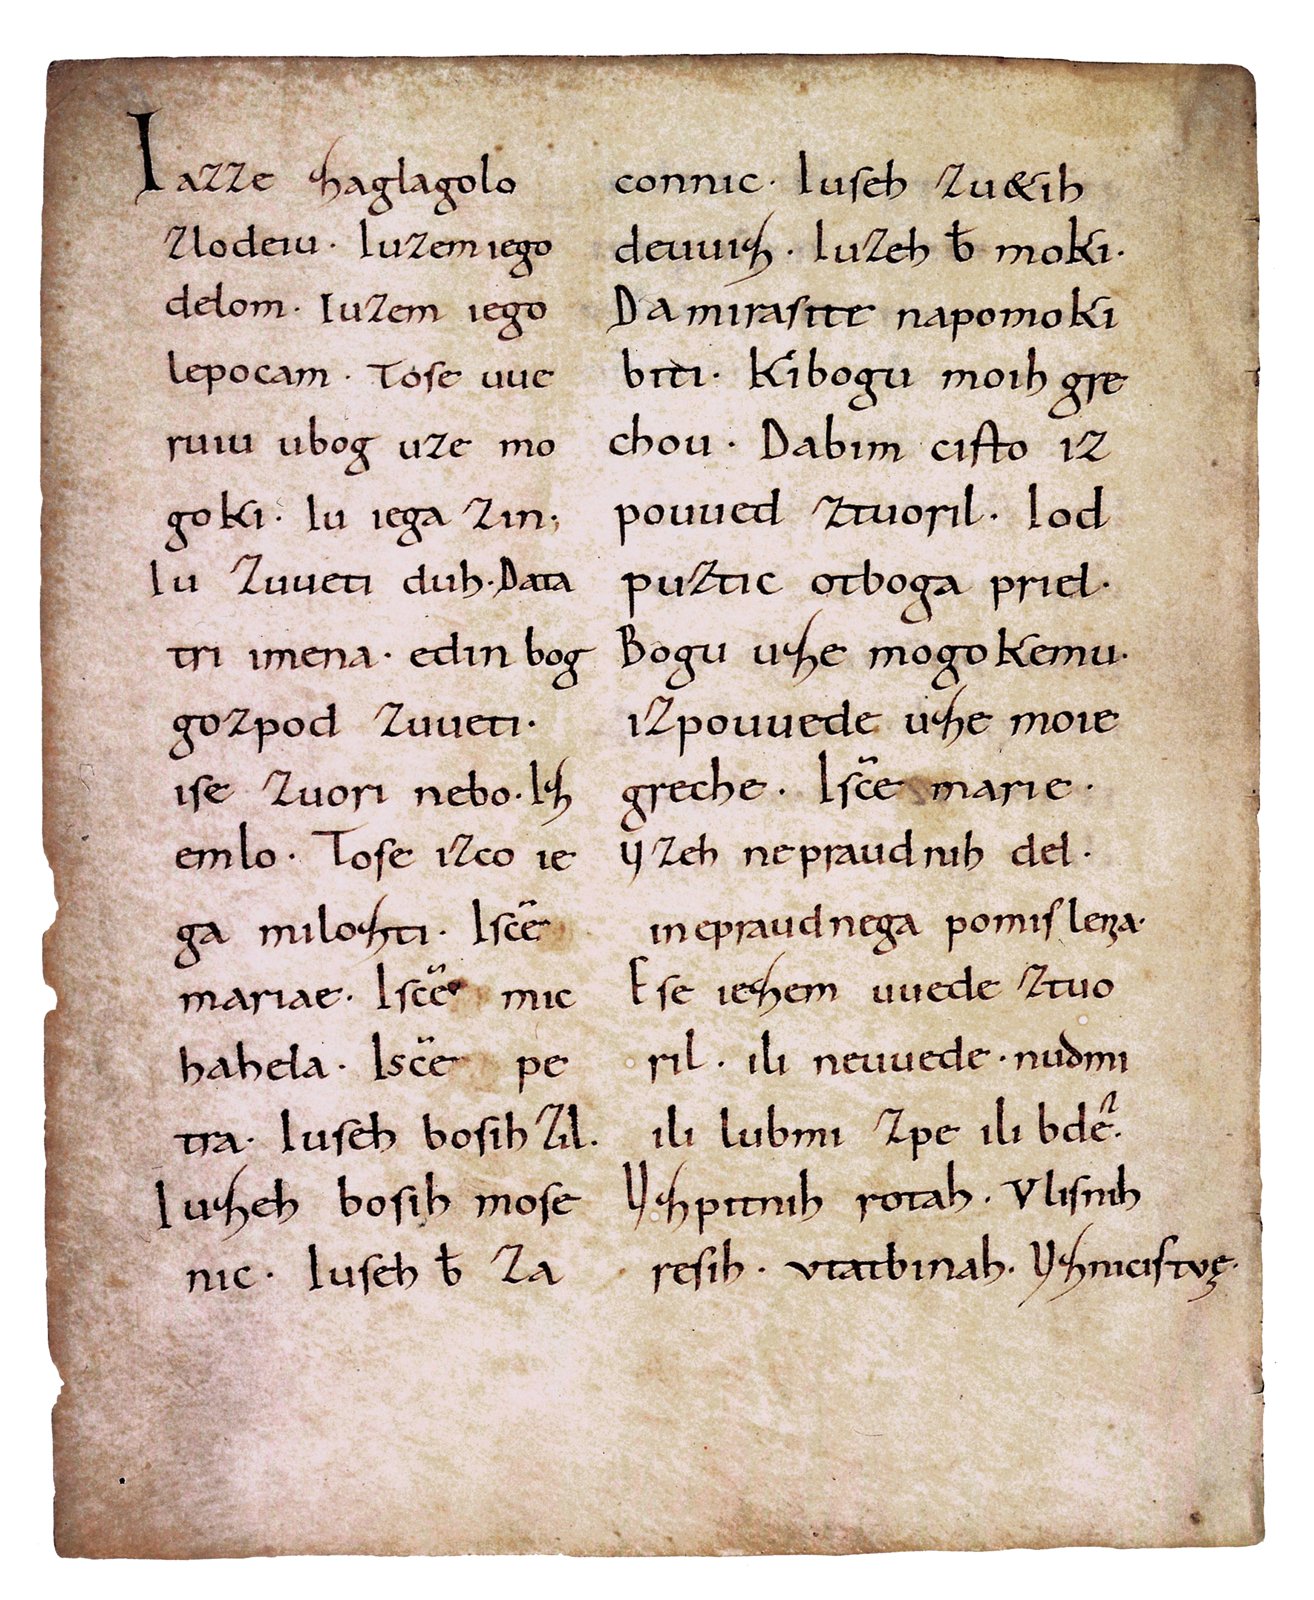 Iazze zaglagolo
zlodeiu· Iuzem iego
delom· Iuzem iego
lepocam· Tose uue
ruiu ubog uze mo
goki· Iu iega zin·,
Iu zuueti duh· Data
tri imena· edin bog
gozpod zuueti·
ise zuori nebo· Iz
emlo· Tose izco ie
ga milozti· Isc̃e
mariae· Isc̃e mic
hahela· Isc̃e pe
tra· Iuseh bosih zil.
Iuzeh bosih mose
nic· Iuseh b̄ za
connic· Iuseh zu&ih
deuuiz· Iuzeh b̄ moki·
Da mirasite napomoki
biti· Kibogu moih gre
chou· Dabim cisto iz
pouued ztuoril· Iod
puztic otboga priel·
Bogu uze mogokemu·
izpouuede uze moie
greche· Isc̃e marie·
Yzeh nepraudnih del·
inepraudnega pomisleza·
Ese iezem uuede ztuo
ril· ili neuuede· nudmi
ili lubmi zpe ili bde·
Yzpitnih rotah· Vlisnih
resih· vtatbinah· Yznicistuę·